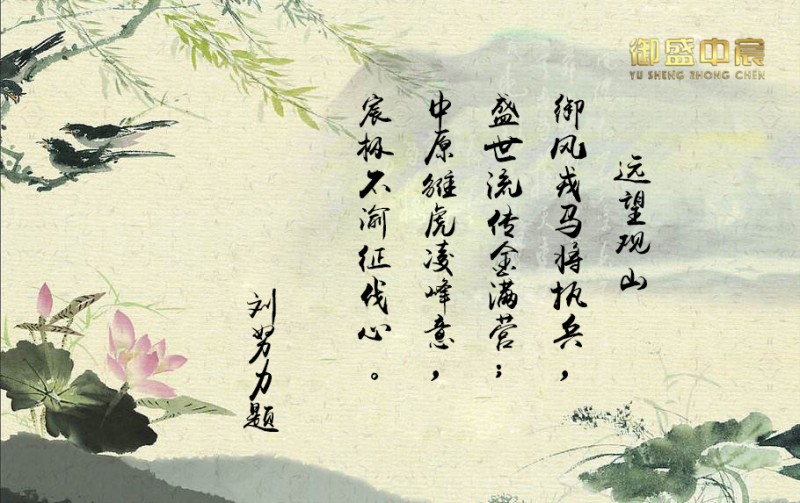 御盛中宸
YU SHENG ZHONG CHEN
远望观山
御风戎马将执兵，
盛世流传金满营；
中原雏虎凌峰意，
宸极不渝征伐心。
刘努力题